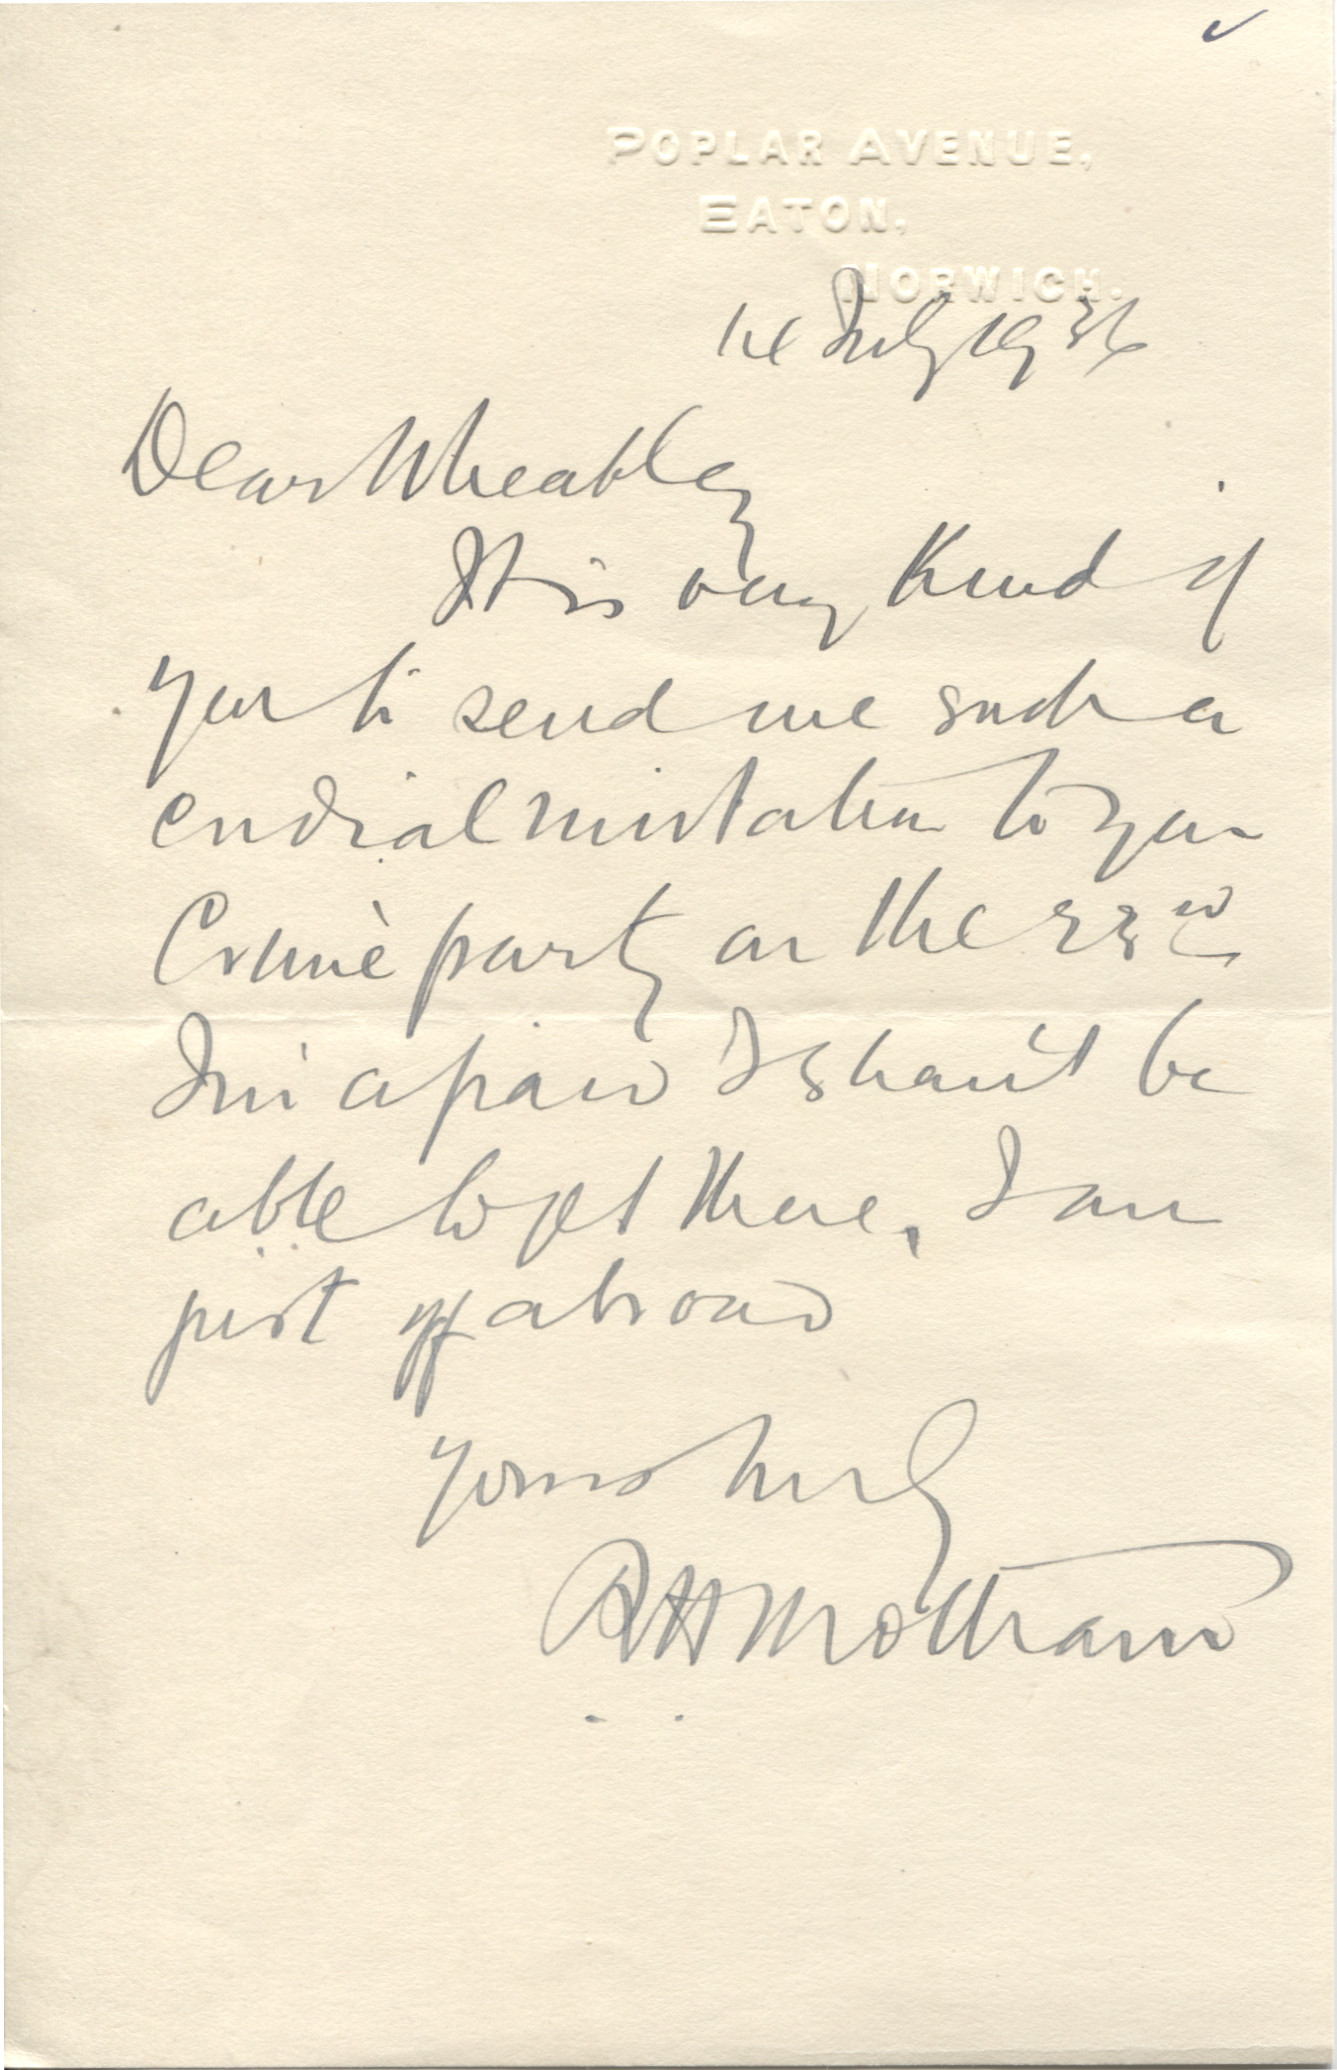 POPLAR AVENUE,
EATON,
NORWICH.
14 July 1936
Dear Wheatley
It is very kind of
you to send me such a
cordial invitation to your
Crime party on the 23rd
I'm afraid I shan't be
able to get there, I am
just off abroad
Yours truly
RH Mottram